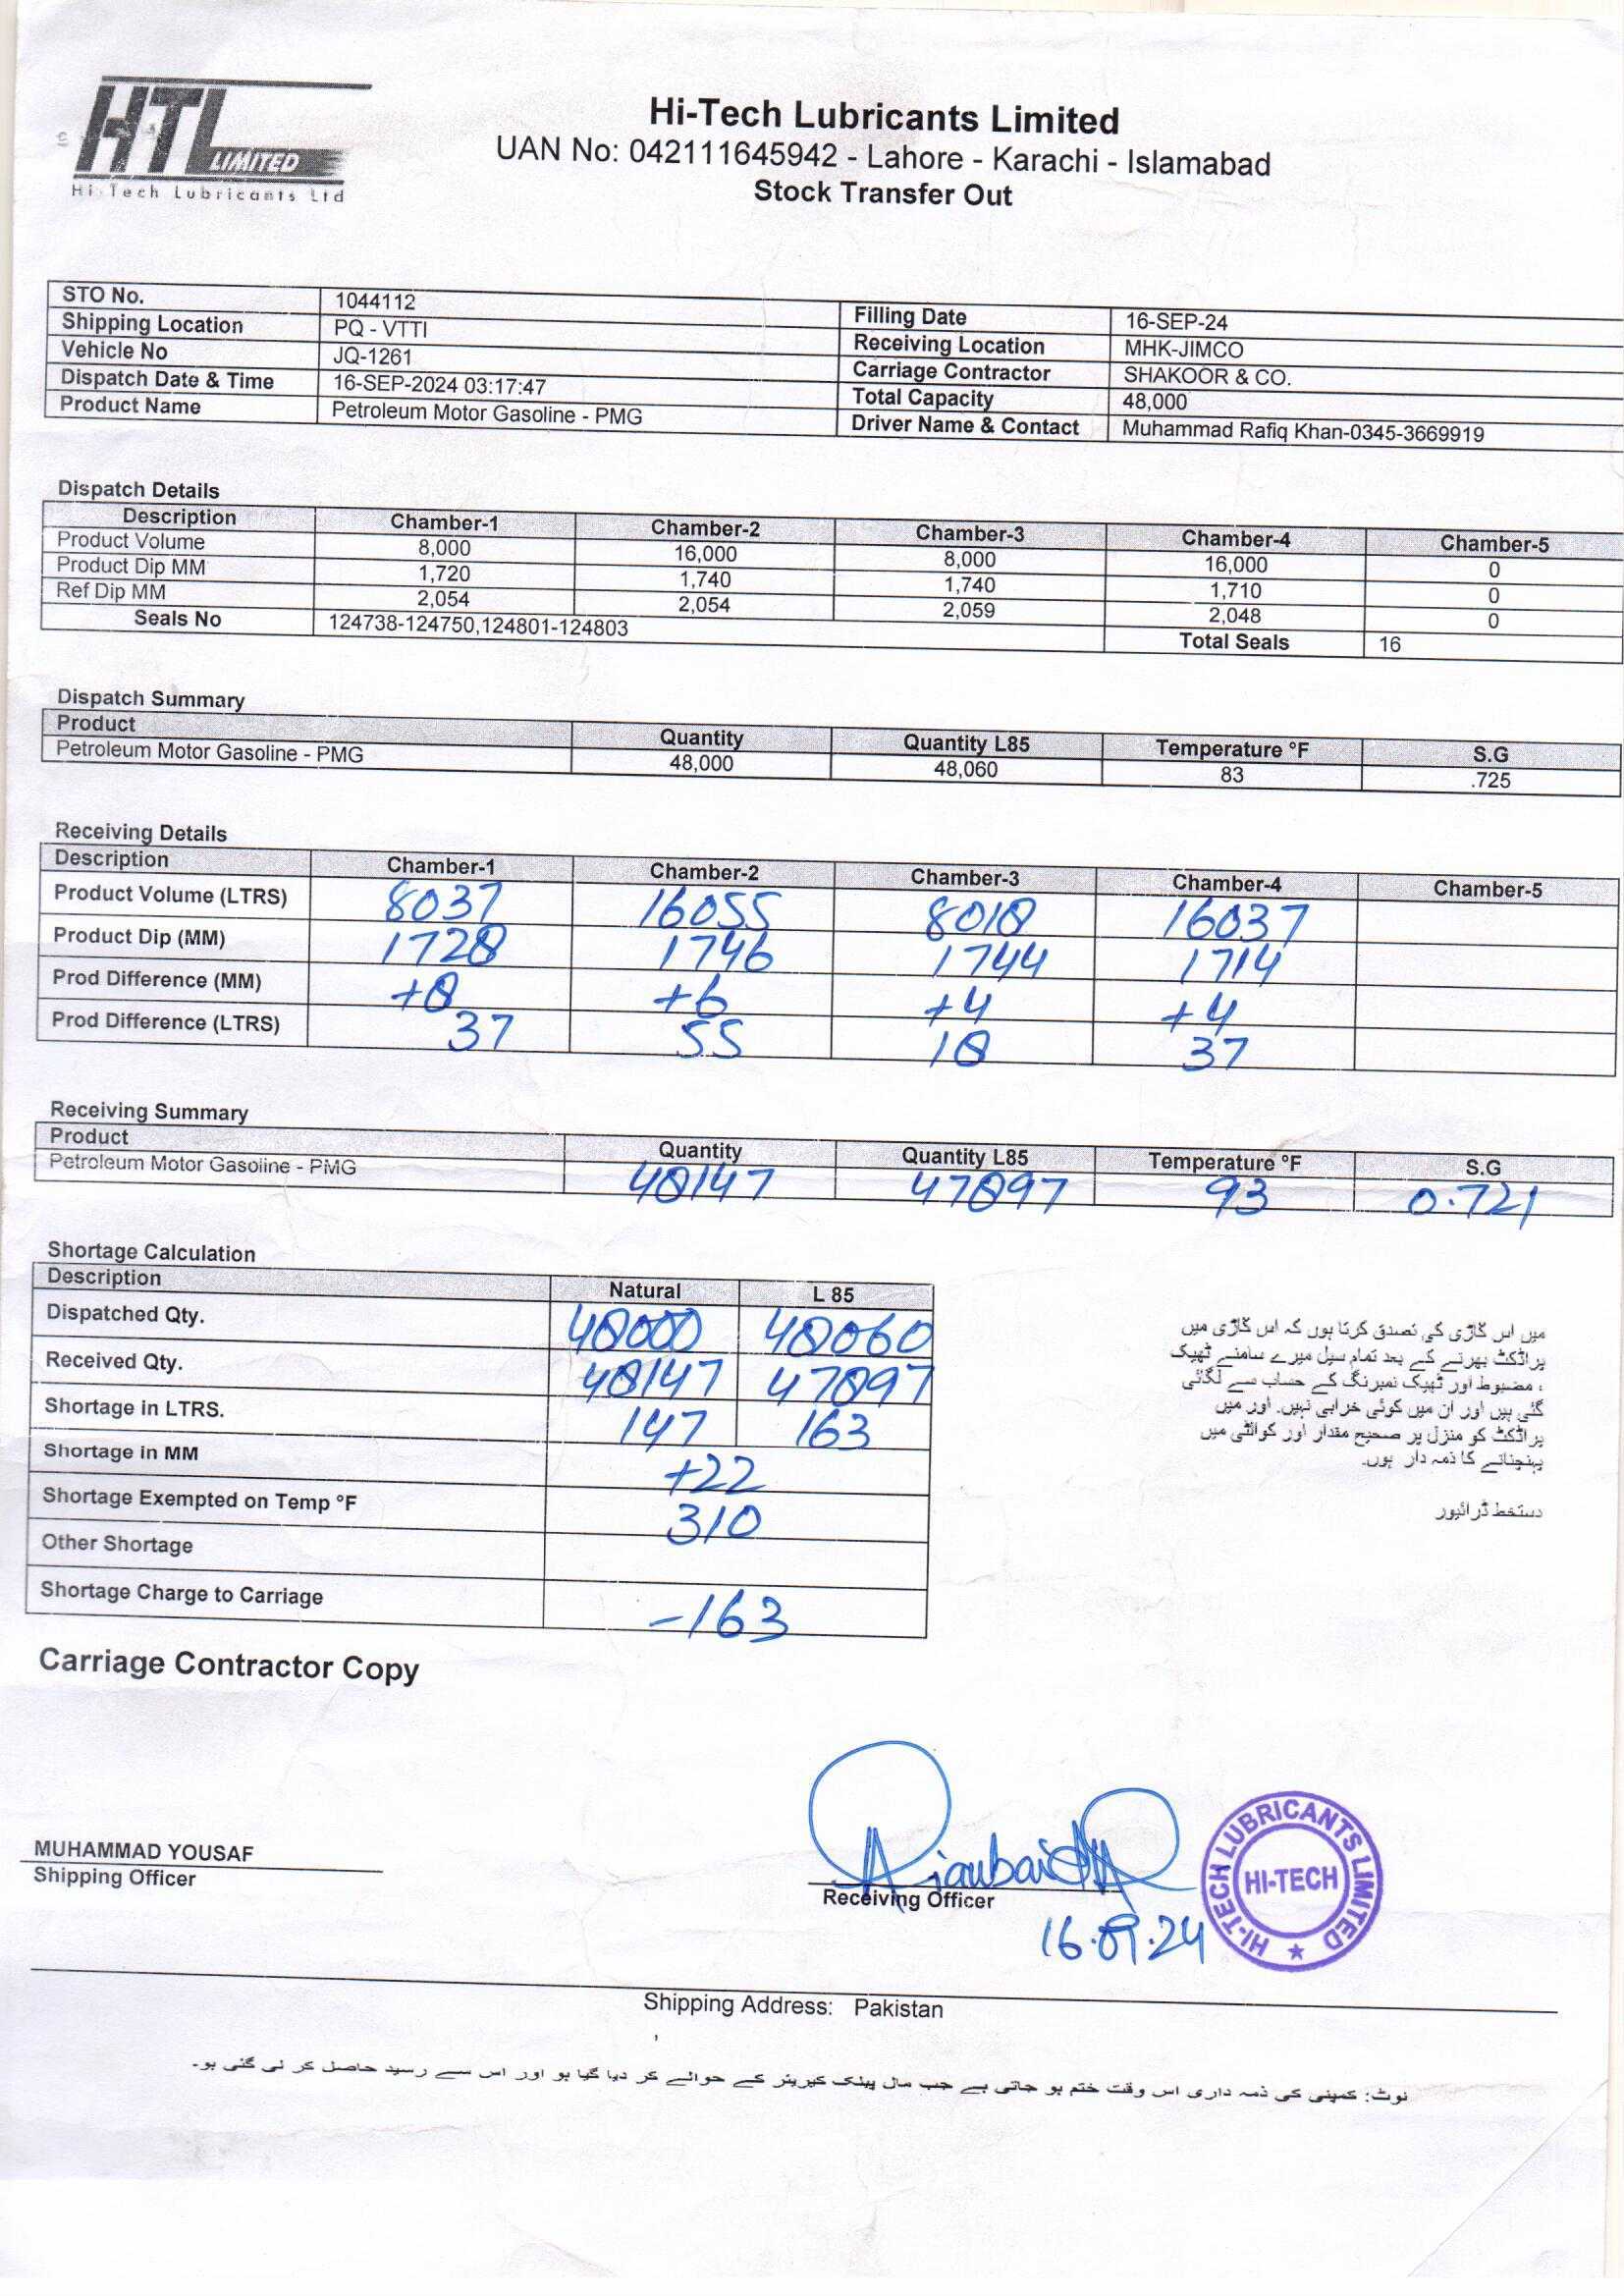 HTL
LIMITED
Hi-Tech Lubricants Ltd
Hi-Tech Lubricants Limited
UAN No: 042111645942 - Lahore - Karachi - Islamabad
Stock Transfer Out
STO No. 1044112
Shipping Location PQ - VTTI
Vehicle No JQ-1261
Dispatch Date & Time 16-SEP-2024 03:17:47
Product Name Petroleum Motor Gasoline - PMG
Filling Date 16-SEP-24
Receiving Location MHK-JIMCO
Carriage Contractor SHAKOOR & CO.
Total Capacity 48,000
Driver Name & Contact Muhammad Rafiq Khan-0345-3669919
Dispatch Details
Description Chamber-1 Chamber-2 Chamber-3 Chamber-4 Chamber-5
Product Volume 8,000 16,000 8,000 16,000 0
Product Dip MM 1,720 1,740 1,740 1,710 0
Ref Dip MM 2,054 2,054 2,059 2,048 0
Seals No 124738-124750,124801-124803 Total Seals 16
Dispatch Summary
Product Quantity Quantity L85 Temperature °F S.G
Petroleum Motor Gasoline - PMG 48,000 48,060 83 .725
Receiving Details
Description Chamber-1 Chamber-2 Chamber-3 Chamber-4 Chamber-5
Product Volume (LTRS) 8037 16055 8018 16037
Product Dip (MM) 1728 1746 1744 1714
Prod Difference (MM) +8 +6 +4 +4
Prod Difference (LTRS) 37 55 18 37
Receiving Summary
Product Quantity Quantity L85 Temperature °F S.G
Petroleum Motor Gasoline - PMG 48147 47897 93 0.721
Shortage Calculation
Description Natural L 85
Dispatched Qty. 48000 48060
Received Qty. 48147 47897
Shortage in LTRS. 147 163
Shortage in MM +22
Shortage Exempted on Temp °F 310
Other Shortage
Shortage Charge to Carriage -163
میں اس گاڑی کی تصدق کرتا ہوں کہ اس گاڑی میں
پراڈکٹ بھرنے کے بعد تمام سیل میرے سامنے ٹھیک
، مضبوط اور ٹھیک نمبرنگ کے حساب سے لگائی
گئی ہیں اور ان میں کوئی خرابی نہیں۔ اور میں
پراڈکٹ کو منزل پر صحیح مقدار اور کوالٹی میں
پہنچنانے کا ذمہ دار ہوں۔
دستخط ڈرائیور
Carriage Contractor Copy
MUHAMMAD YOUSAF
Shipping Officer
Receiving Officer
16.09.24
HI-TECH LUBRICANTS LIMITED
HI-TECH
Shipping Address: Pakistan
نوٹ: کمپنی کی ذمہ داری اس وقت ختم ہو جاتی ہے جب مال پینک کیریئر کے حوالے کر دیا گیا ہو اور اس سے رسید حاصل کر لی گئی ہو۔